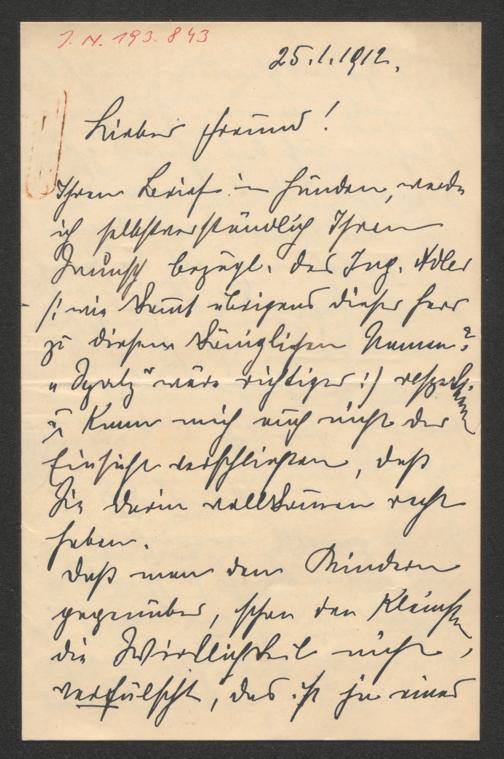 J. N. 193.843
25.1.1912.
Lieber Freund!
Ihren Brief in Händen, werde
ich selbstverständlich Ihren
Wunsch bezügl. des Ing. Adler
/: wie kommt übrigens dieser Herr
zu diesem königlichen Namen?
"Spatz" wäre richtiger :/ respekt.
Kann mich auch nicht der
Einsicht verschließen, daß
Sie darin vollkommen recht
haben.
Daß man den Kindern
gegenüber, schon den Kleinsten
die Wirklichkeit nicht
verfälscht, das ist ja eines